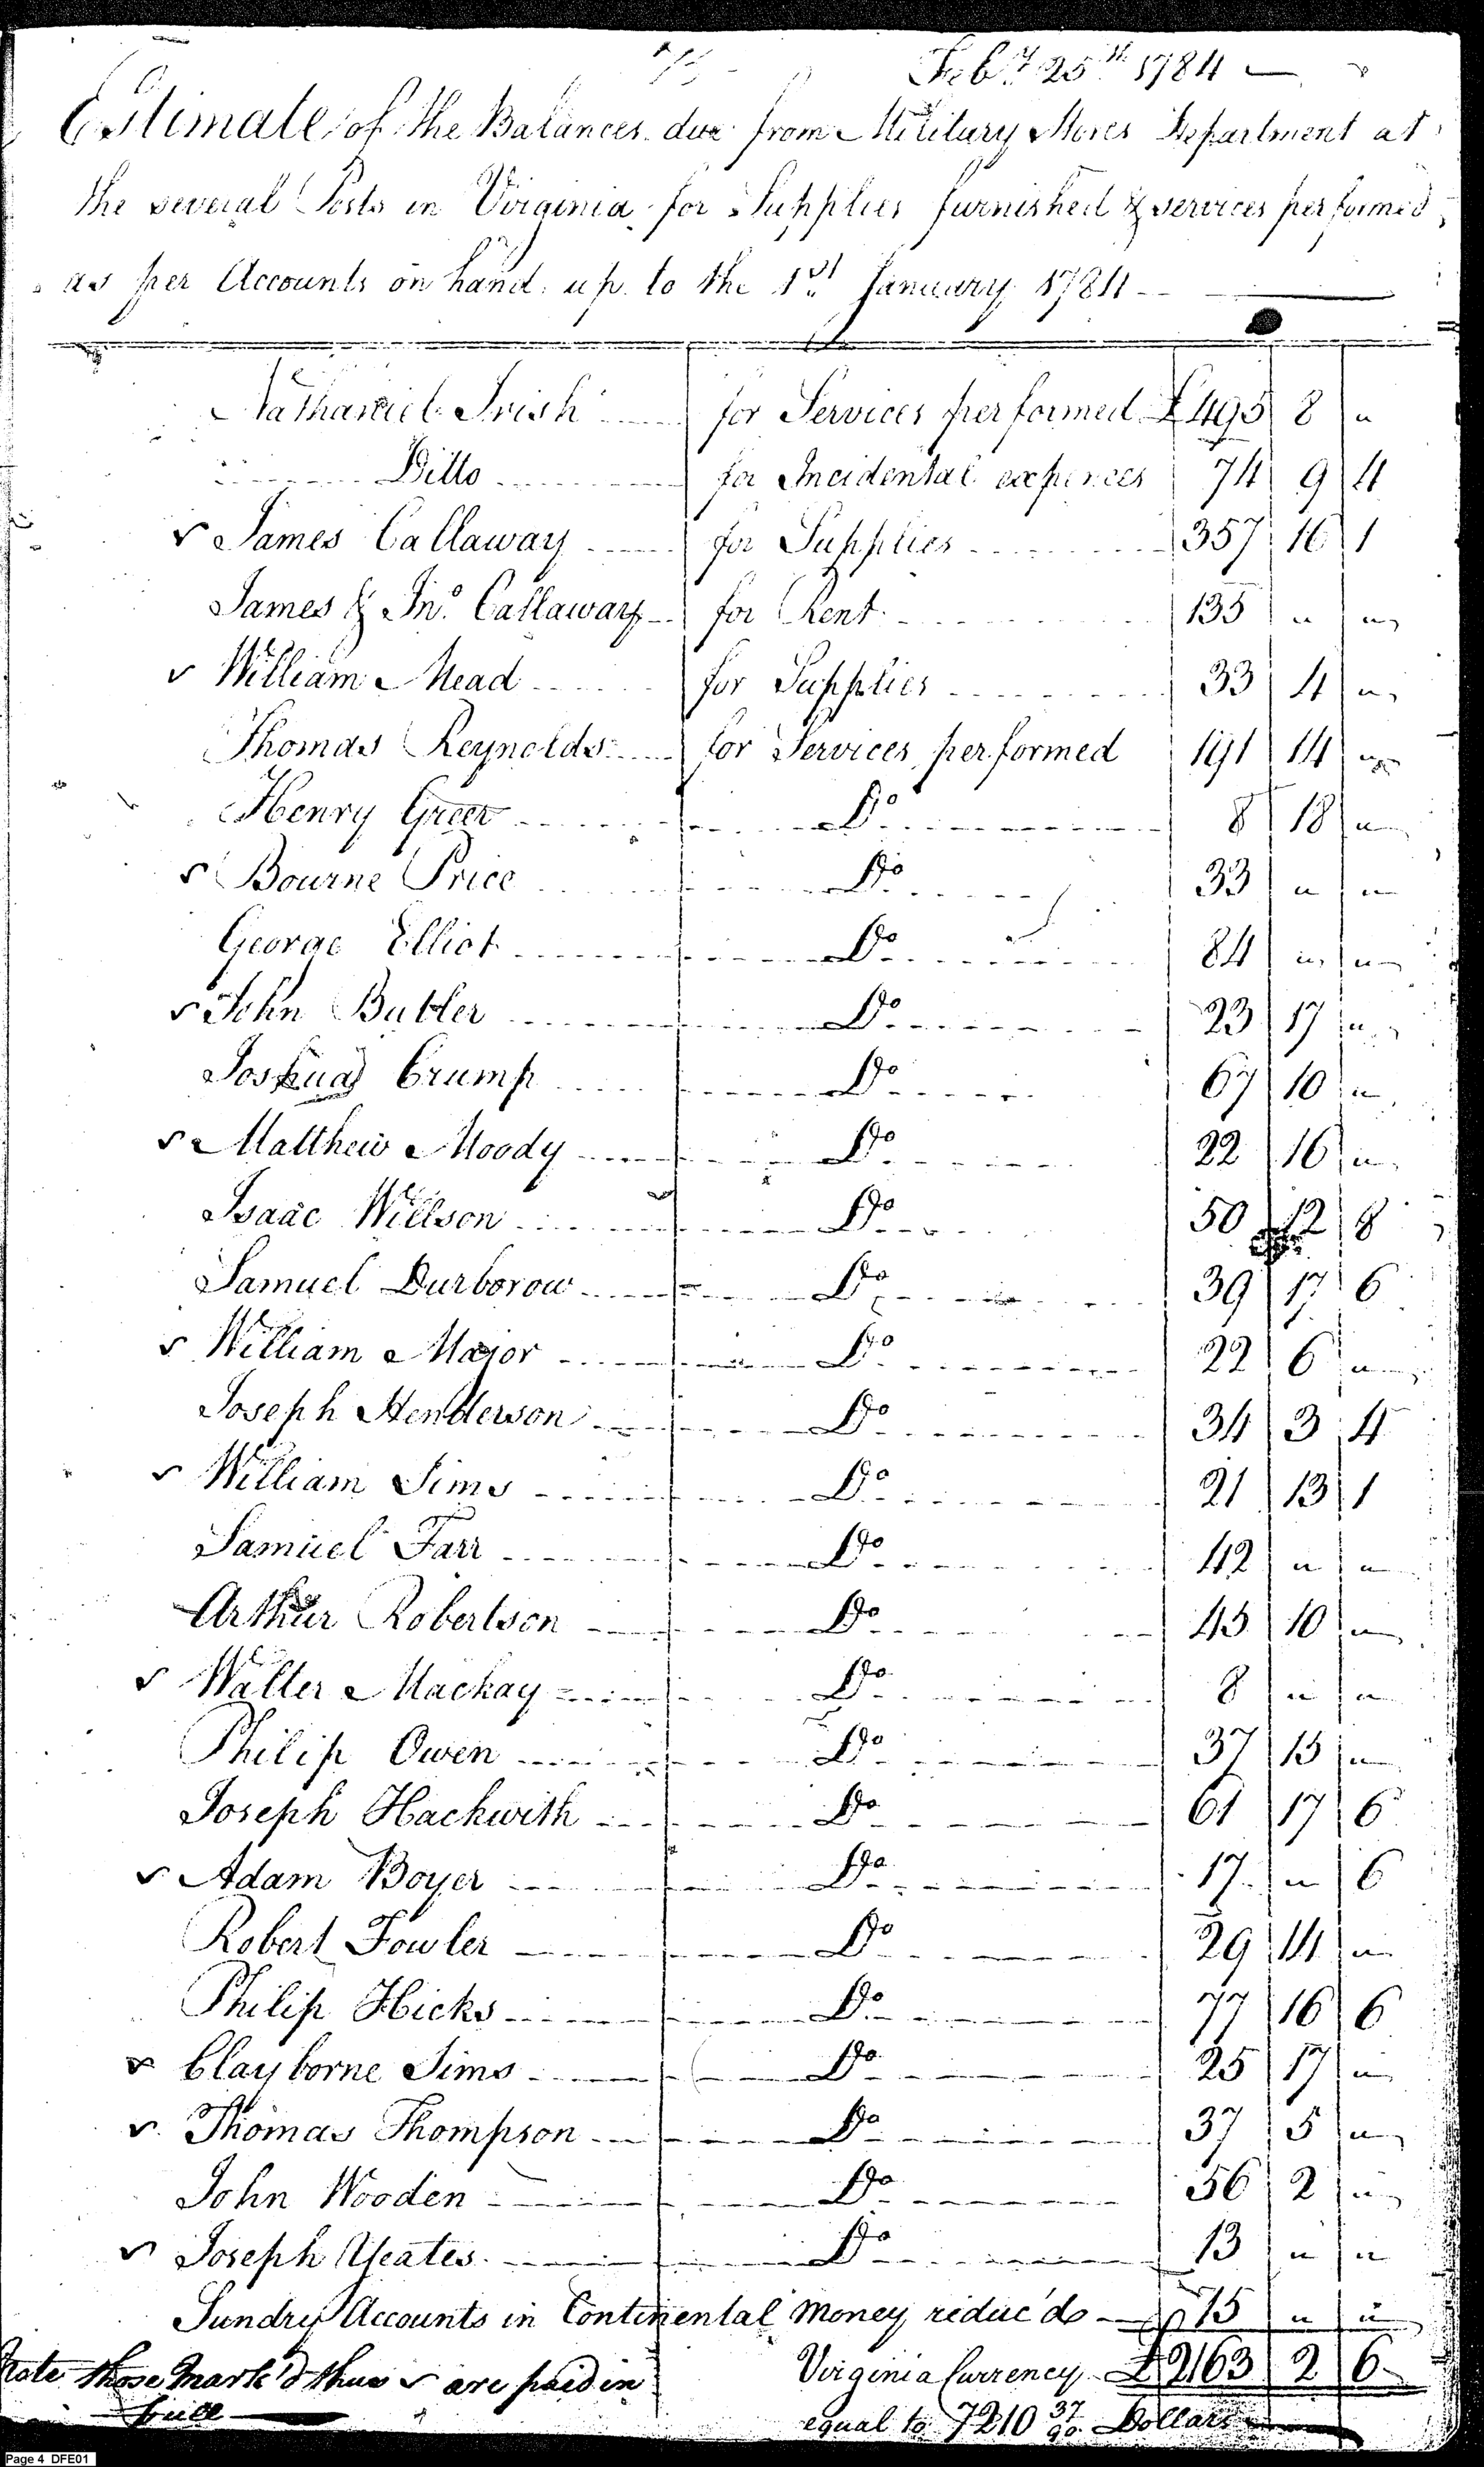 Feby 25th 1784
Estimate of the Balances due from Military Stores Department at
the several Posts in Virginia for Supplies furnished & services performed,
as per Accounts on hand up to the 1st January 1784
Nathaniel Irish for Services performed £495 8 "
Ditto for Incidental expences 74 9 4
✓ James Callaway for Supplies 357 16 1
James & Jno Callaway for Rent 135 " "
✓ William Mead for Supplies 33 4 "
Thomas Reynolds for Services performed 191 14 "
Henry Greer Do 8 18 "
✓ Bourne Price Do 33 " "
George Elliot Do 84 " "
✓ John Butler Do 23 17 "
Joshua Crump Do 67 10 "
✓ Matthew Moody Do 22 16 "
Isaac Willson Do 50 12 8
Samuel Durborow Do 39 17 6
✓ William Major Do 22 6 "
Joseph Henderson Do 34 3 4
✓ William Sims Do 21 13 1
Samuel Farr Do 42 " "
Arthur Robertson Do 45 10 "
✓ Walter Mackay Do 8 " "
Philip Owen Do 37 15 "
Joseph Hackwith Do 61 17 6
✓ Adam Boyer Do 17 " 6
Robert Fowler Do 29 14 "
Philip Hicks Do 77 16 6
✓ Clayborne Sims Do 25 17 "
✓ Thomas Thompson Do 37 5 "
John Wooden Do 56 2 "
✓ Joseph Yeates Do 13 " "
Sundry Accounts in Continental Money reduc'd 15 " "
Virginia Currency £2163 2 6
Note those Mark'd thus ✓ are paid in
full
equal to 7210 37/90 Dollars
Page 4 DFE01